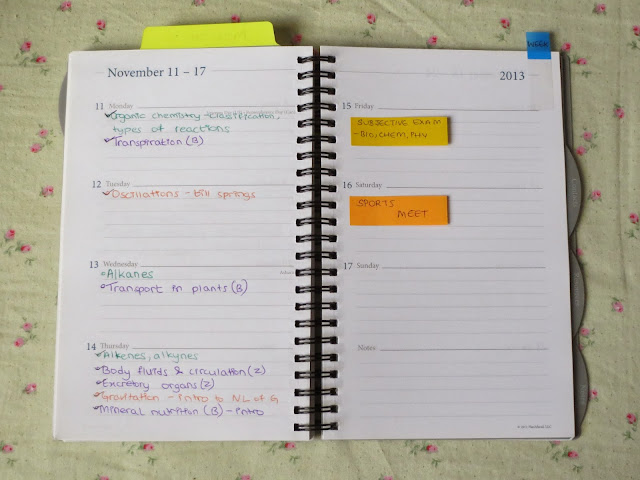 November 11 – 17
11 Monday
Organic chemistry - classification,
types of reactions
Transpiration (B)
12 Tuesday
Oscillations - till springs
13 Wednesday
Alkanes
Transport in plants (B)
14 Thursday
Alkenes, alkynes
Body fluids & circulation (Z)
Excretory organs (Z)
Gravitation - intro to NL of G
Mineral nutrition (B) - intro
WEEK
2013
15 Friday
SUBJECTIVE EXAM
- BIO, CHEM, PHY
16 Saturday
SPORTS
MEET
17 Sunday
Notes